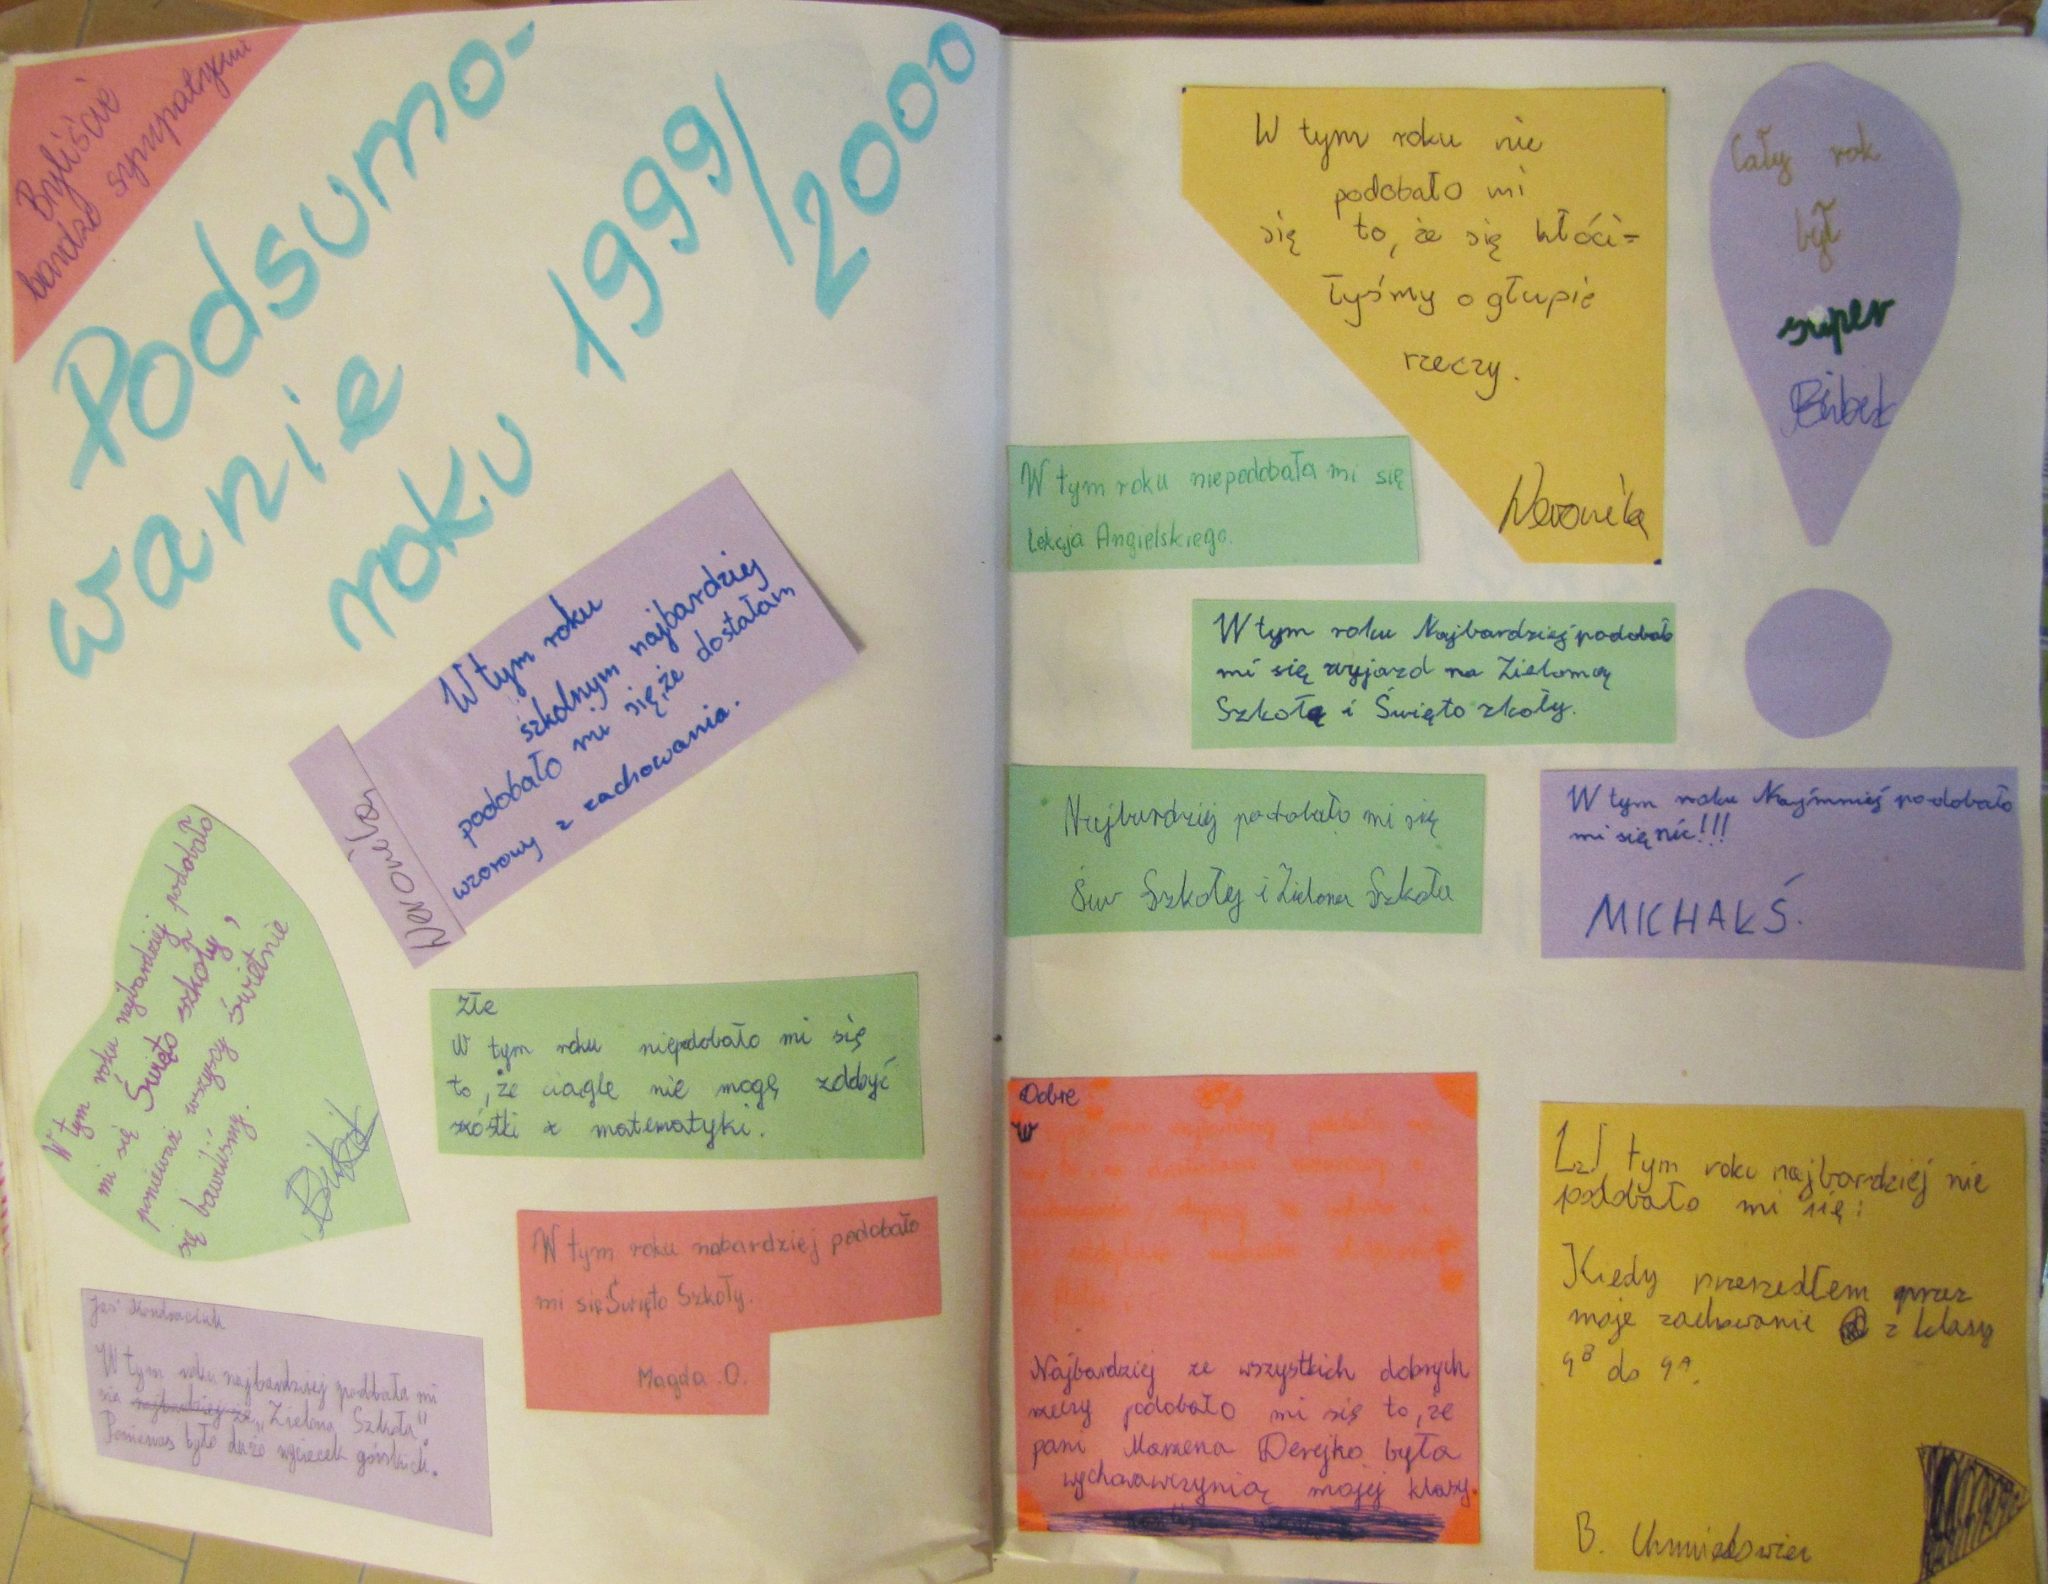 Byliście
bardzo sympatyczni
Podsumo-
wanie
roku 1999/
2000
W tym roku
szkolnym najbardziej
podobało mi się, że dostałam
wzorowy z zachowania.
Weronika
W tym roku najbardziej podobało
mi się Święto szkoły,
ponieważ wszyscy świetnie
się bawiliśmy.
Złe
W tym roku niepodobało mi się
to, że ciągle nie mogę zdobyć
szóstki z matematyki.
W tym roku nabardziej podobało
mi się Święto Szkoły.
Magda .O.
Jaś
W tym roku najbardziej podobała mi
się najbardziej że „Zielona Szkoła".
Ponieważ było dużo wycieczek górskich.
W tym roku nie
podobało mi
się to, że się kłóci=
łyśmy o głupie
rzeczy.
Weronika
Cały rok
był
super
W tym roku niepodobała mi się
Lekcja Angielskiego.
W tym roku Najbardziej podobał
mi się wyjazd na Zieloną
Szkołę i Święto zkoły.
Najbardziej podobało mi się
Św Szkołej i Zielona Szkoła
W tym roku Najmniej podobało
mi się nic!!!
MICHAŁ Ś.
Dobre
W
Najbardziej ze wszystkich dobrych
rzeczy podobało mi się to, że
pani Marzena Derejko była
wychowawczynią mojej klasy.
W tym roku najbardziej nie
podobało mi się:
Kiedy przeszedłem przez
moje zachowanie z klasy
4B do 4A.
B.